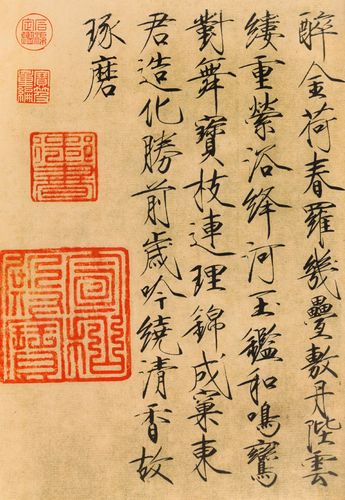 醉金荷春羅幾疊敷丹陛雲
縷重縈浴絳河玉鑑和鳴鸞
對舞寶枝連理錦成窠東
君造化勝前歲吟繞清香故
琢磨